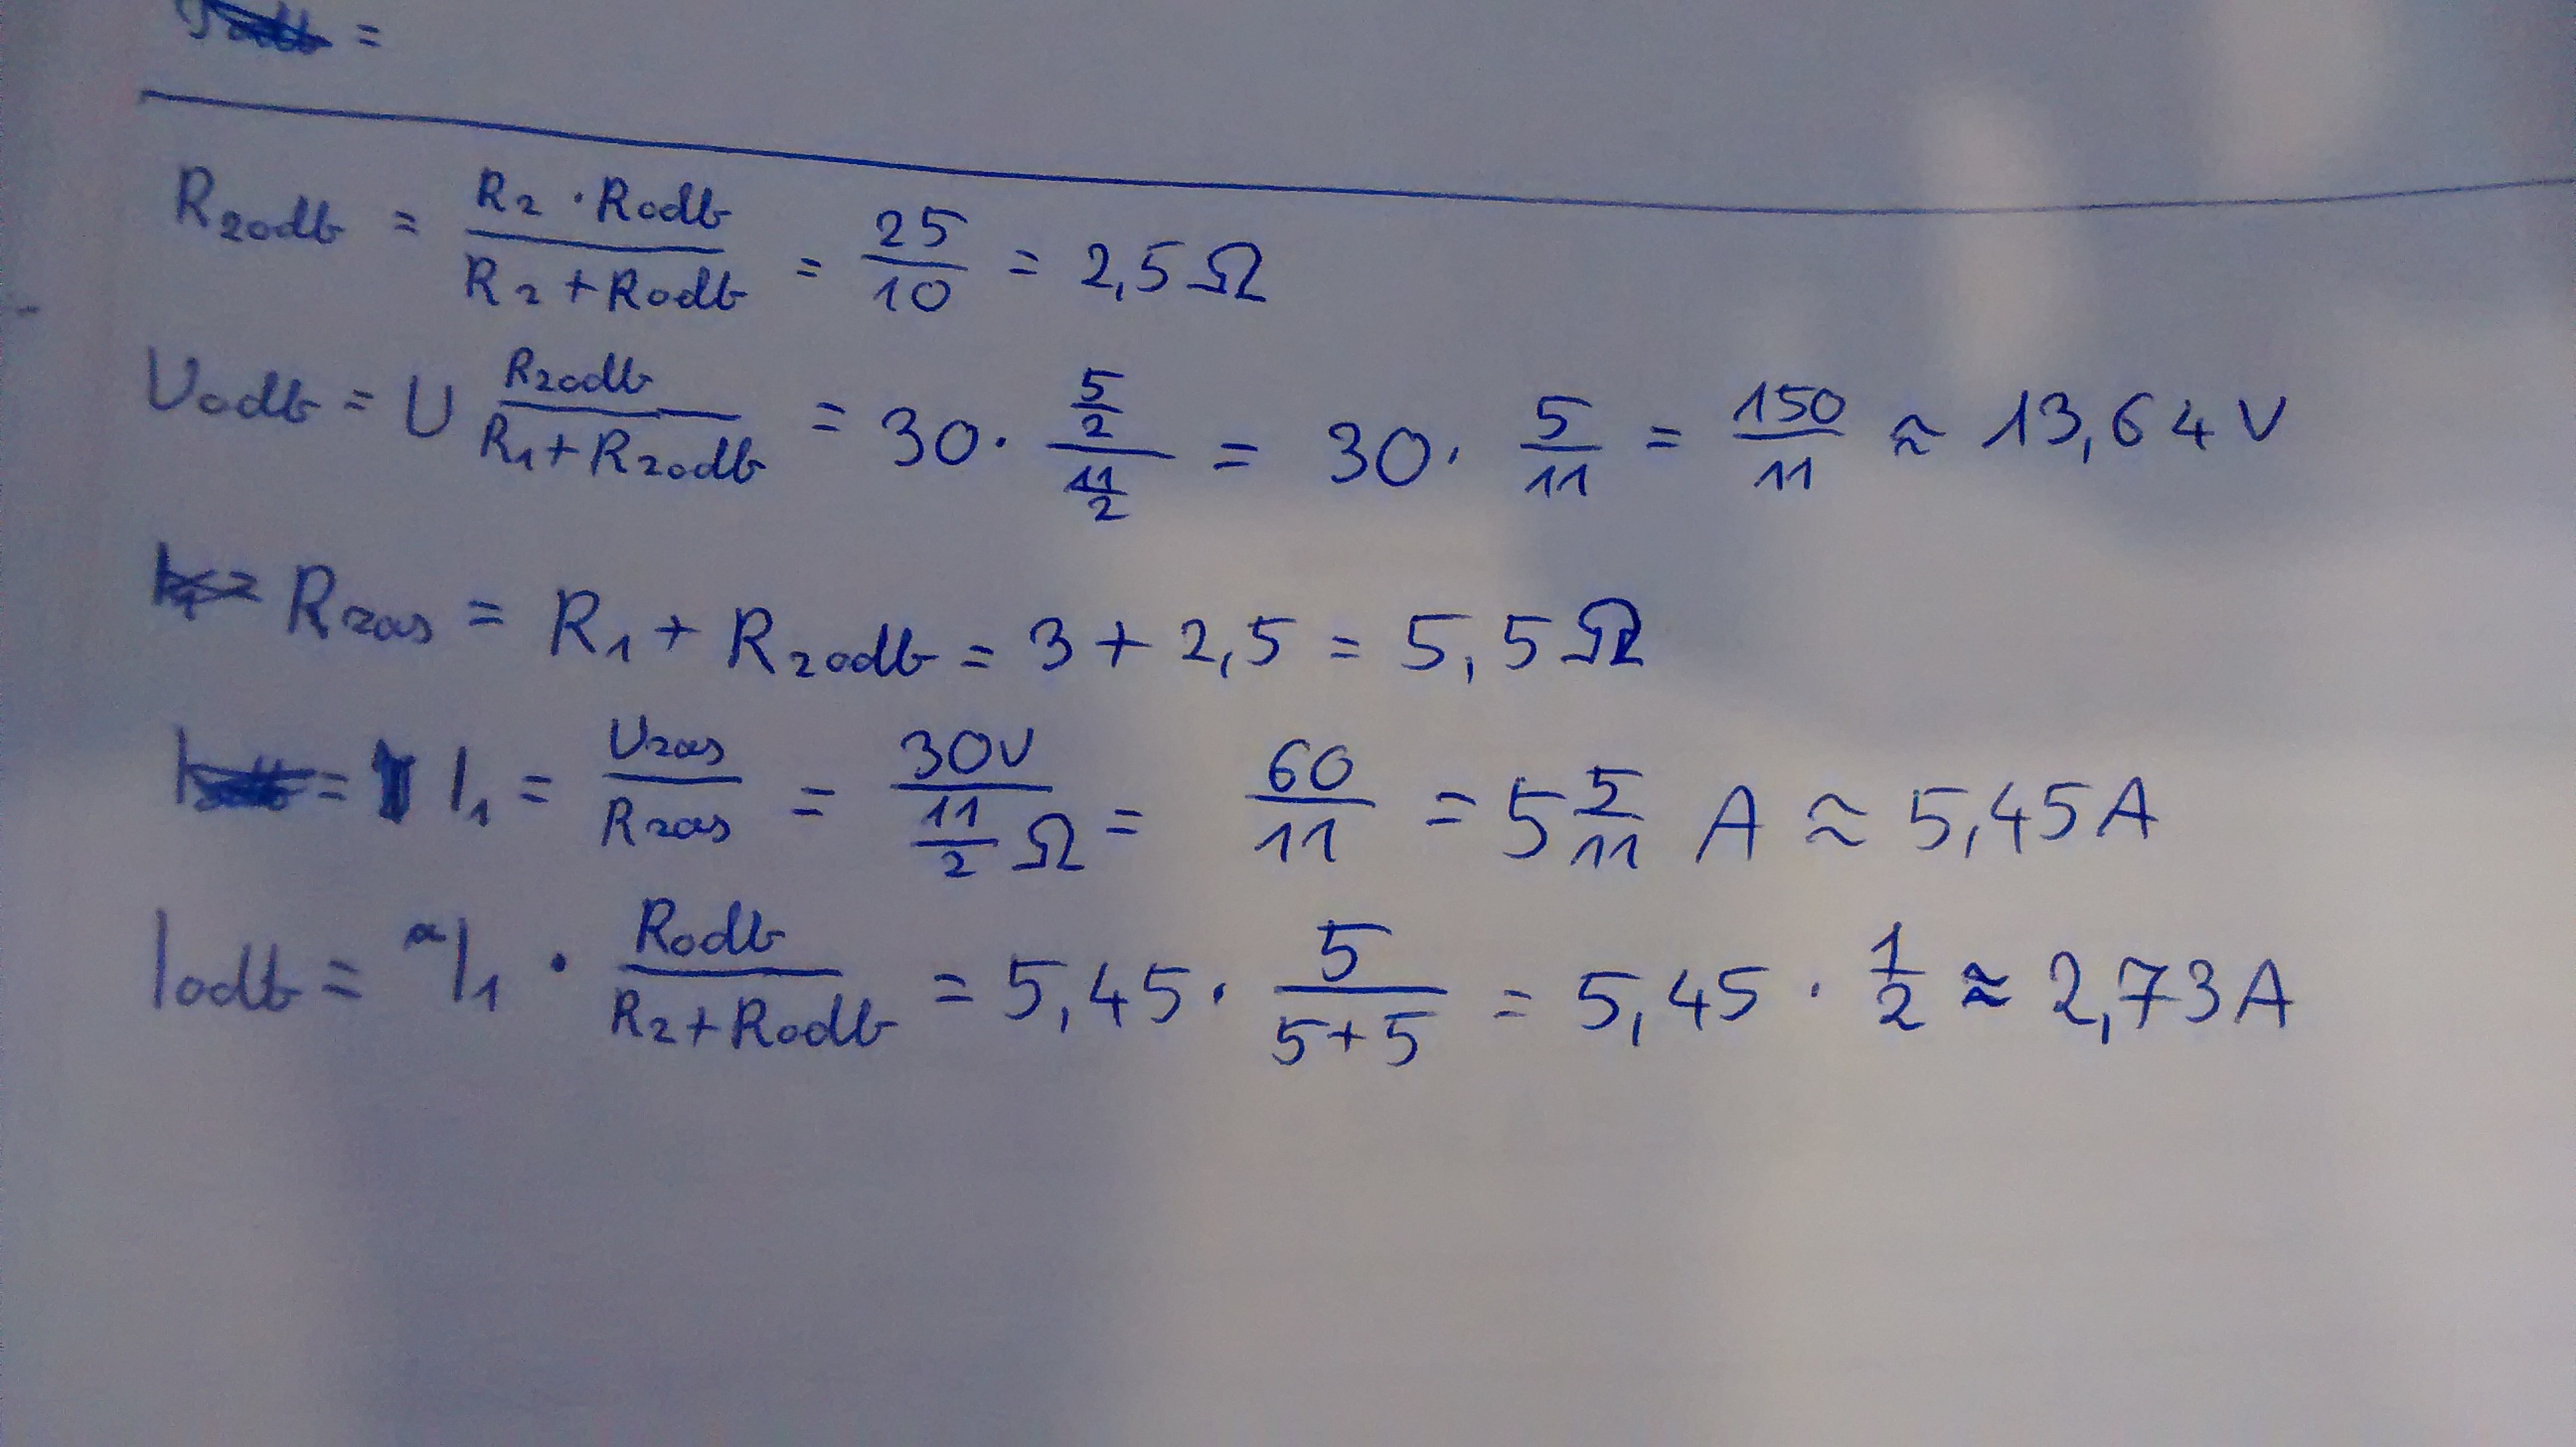 =
R₂odb = (R₂ · Rodb)/(R₂ + Rodb) = 25/10 = 2,5 Ω
Uodb = U R₂odb/(R₁ + R₂odb) = 30 · (5/2)/(11/2) = 30 · 5/11 = 150/11 ≈ 13,64 V
Rzas = R₁ + R₂odb = 3 + 2,5 = 5,5 Ω
= I₁ = Uzas/Rzas = 30V/(11/2 Ω) = 60/11 = 5 5/11 A ≈ 5,45 A
Iodb = I₁ · Rodb/(R₂ + Rodb) = 5,45 · 5/(5+5) = 5,45 · 1/2 ≈ 2,73 A